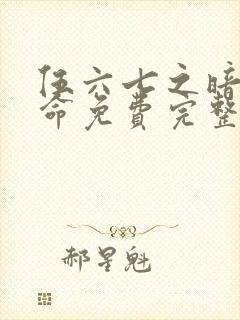 伍六七之暗
命免费完整
郝星魁